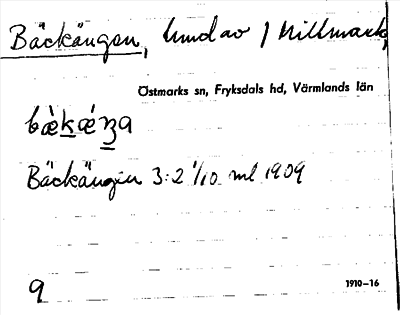 Bäckängen, lund av / Millmark,
Östmarks sn, Fryksdals hd, Värmlands län
bæ̀kǽŋa
Bäckängen 3:2 1/10 ml 1909
9
1910–16